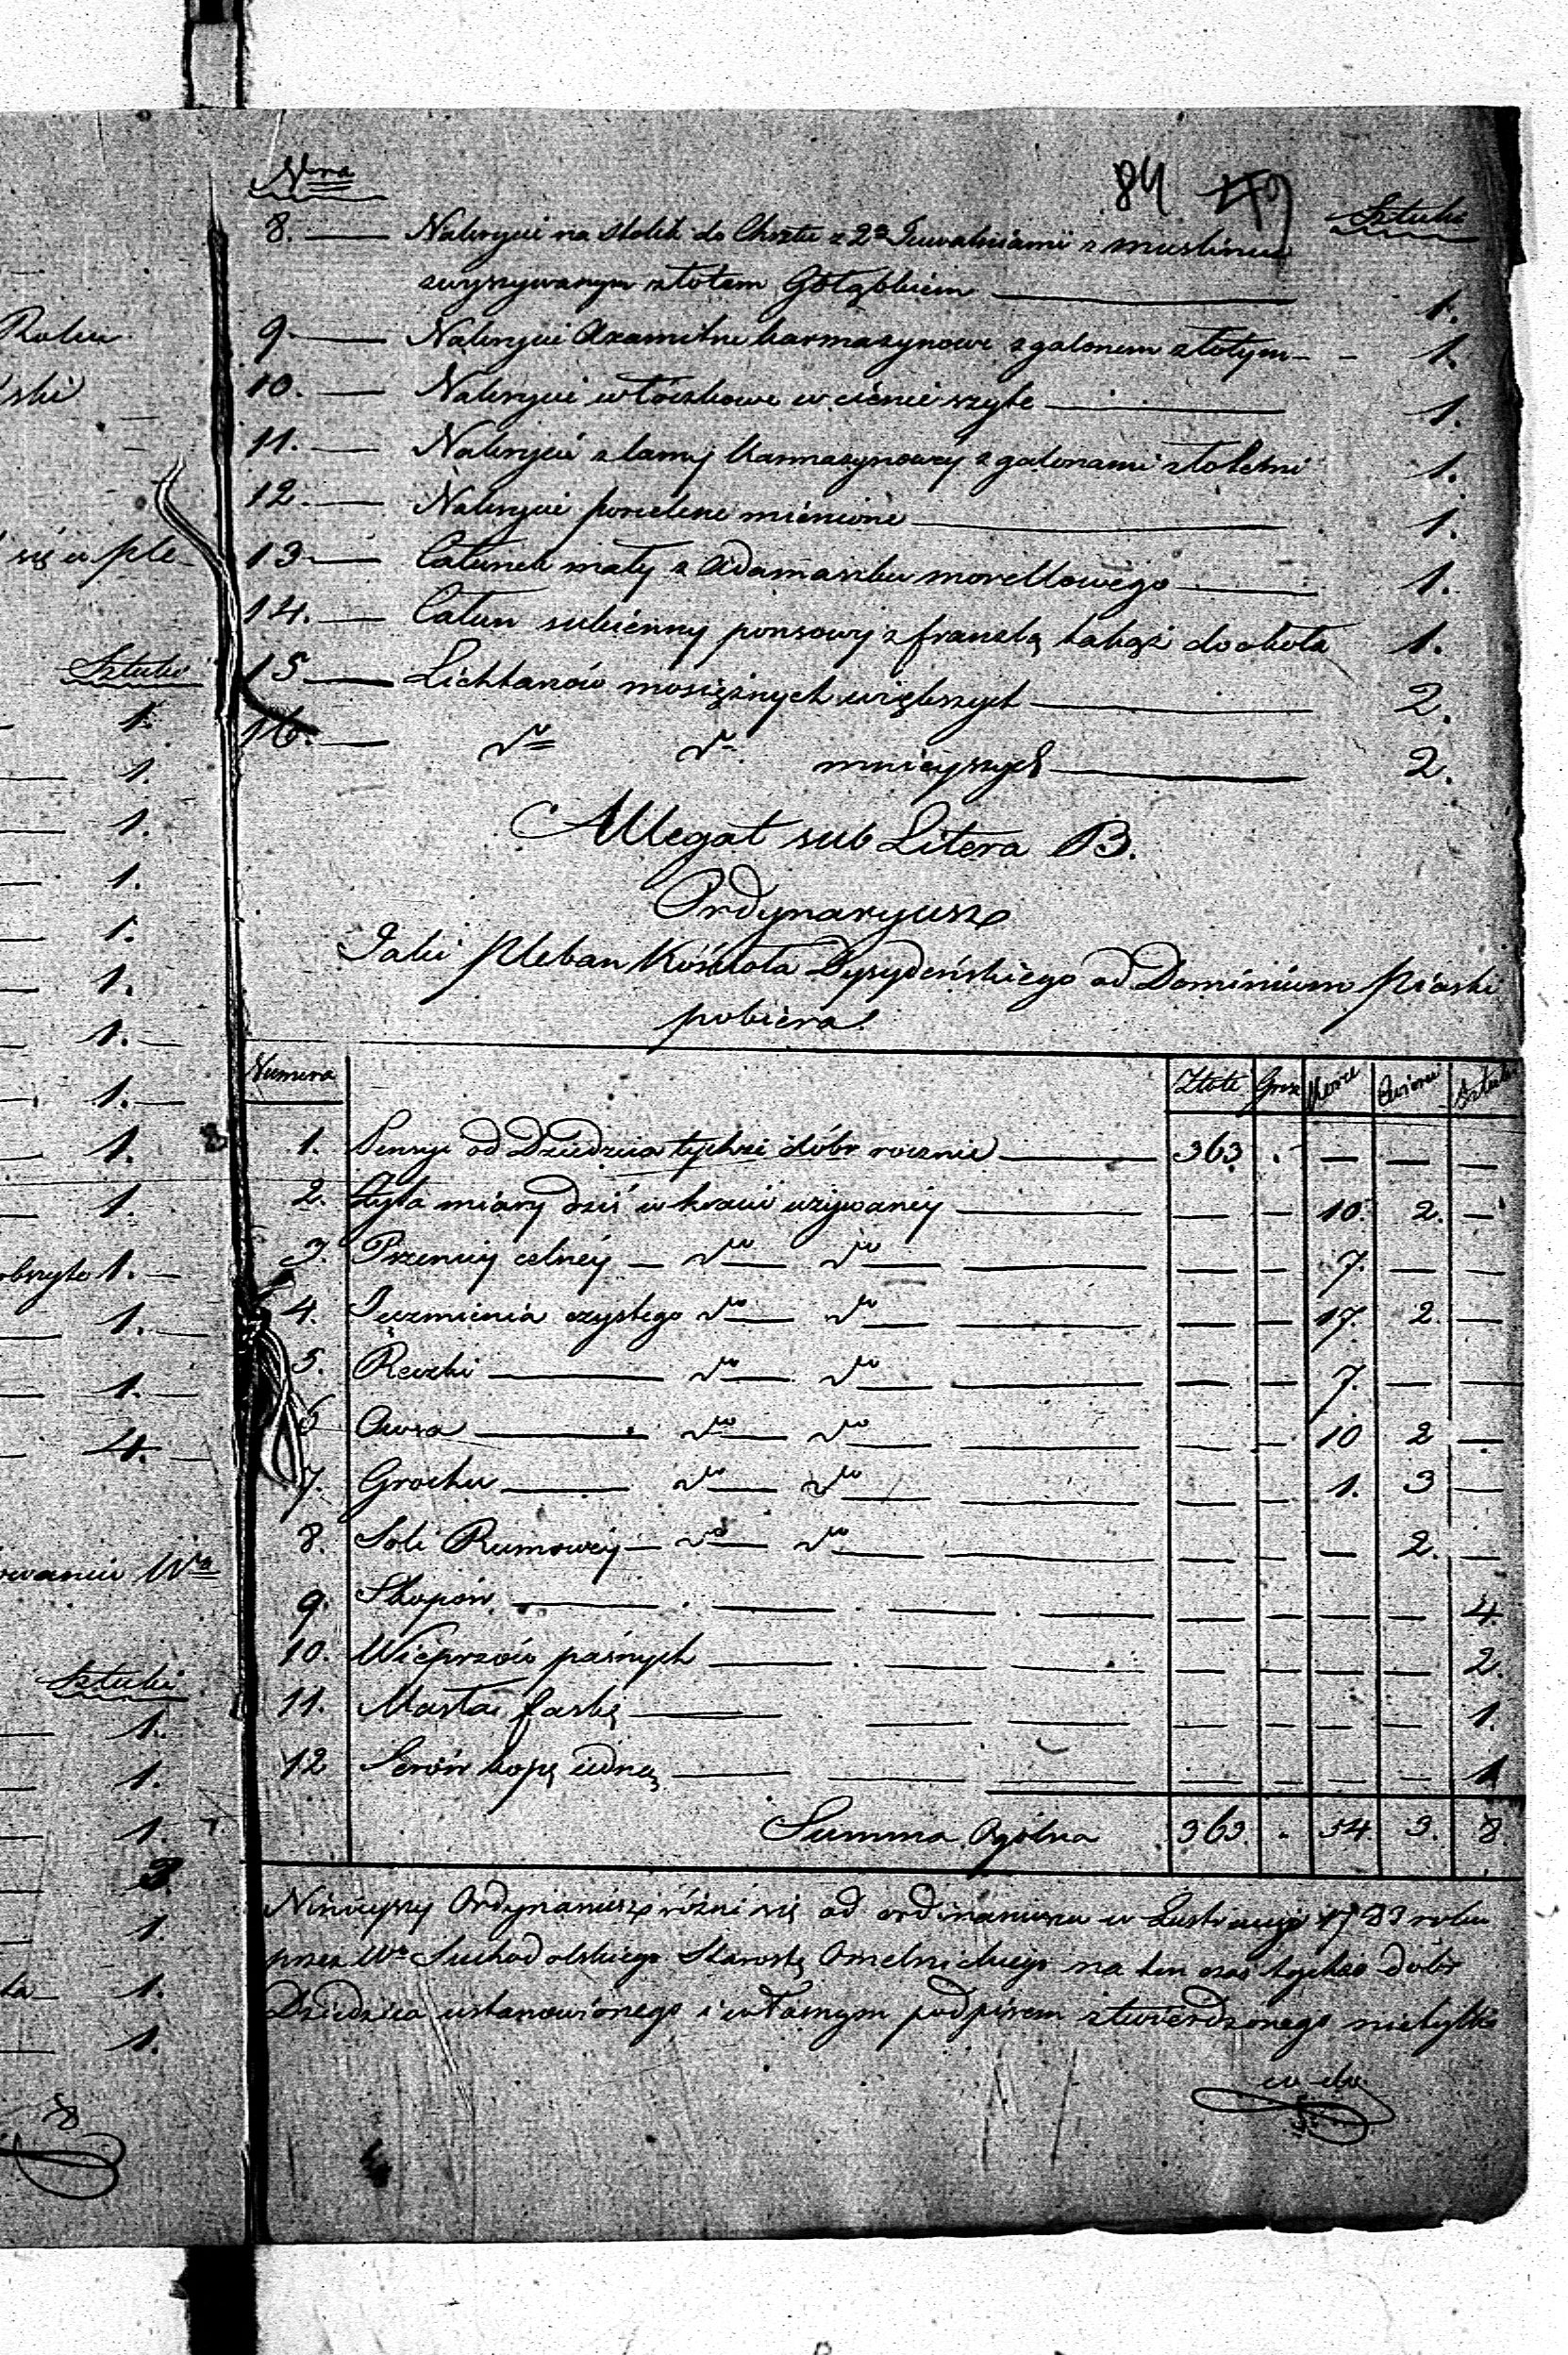 Roku
ski
się w ple-
Sztuki
1.
1.
1.
1.
1.
1.
1.
1.
1.
1.
1.
1.
1.
4.
Wo
Sztuki
1.
1.
1.
3.
1.
1.
1.
Nra
84 79
Sztuki
8. Nakrycie na stolik do Chrztu z 2a Tuwalniami z muslinu
wyszywanym złotem Gołąbkiem 1.
9. Nakrycie Axamitne karmazynowe z galonem złotym 1.
10. Nakrycie włóczkowe w cienie szyte 1.
11. Nakrycie z lamy Karmazynowey z galonami złotemi 1.
12. Nakrycie porcelene mienione 1.
13. Całunek mały z Adamaszku morellowego 1.
14. Całun sukienny ponsowy z franzlą takąż dookoła 1.
15. Lichtarzów mosiężnych większych 2.
16. do do mnieyszych 2.
Allegat sub Litera B.
Ordynaryusz
Jaki Pleban Kościoła Dyssydeńskiego od Dominium Piaski
pobiera.
Numera Złote Grosz Korce Ćwierci Sztuki
1. Pensyi od Dziedzica tychże dóbr rocznie 363 . — — —
2. Żyta miary dziś w kraiu używaney — — 10. 2. —
3. Przenicy celney — do do — — 7. — —
4. Jęczmienia czystego do do — — 17. 2. —
5. Reczki do do — — 7. — —
6 Owsa do do — — 10 2 —
7. Grochu do do — — 1. 3 —
8. Soli Rumowey — do do — — — 2. —
9. Skopów — — — — 4.
10. Wieprzów paśnych — — — — 2.
11. Masła faskę — — — — 1.
12 Serów kopę iedną — — — — 1
Summa Ogólna 363 . 54. 3. 8.
Ninieyszy Ordynariusz różni się od ordinariusza w Lustracyi 1783 roku
przez Wo Suchodolskiego Starostę Omelnickiego na ten czas tychże dóbr
Dziedzica ustanowionego i własnym podpisem stwierdzonego nietylko